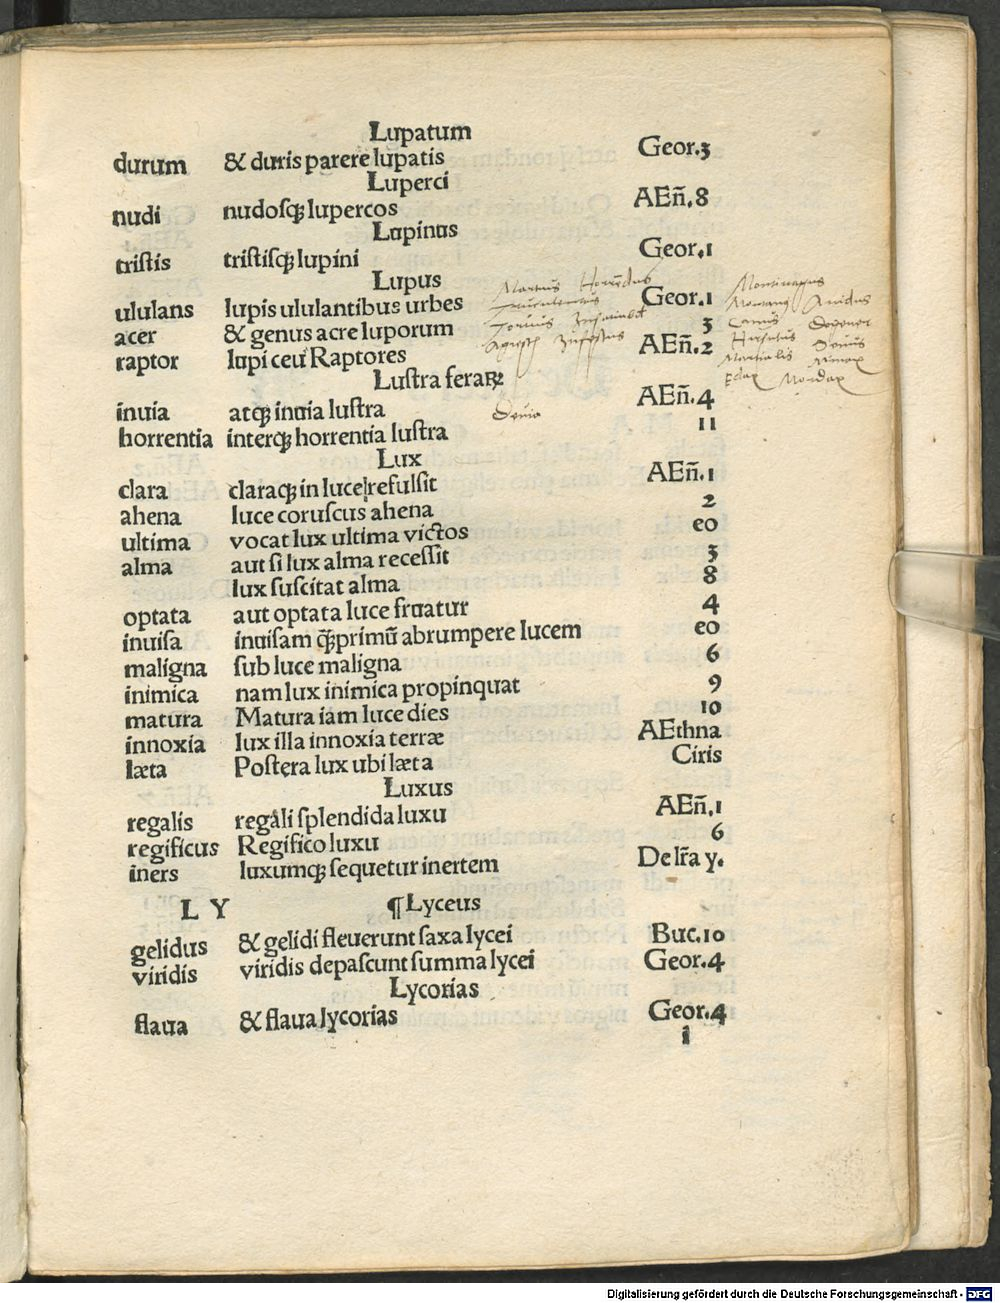 Lupatum
durum & duris parere lupatis Geor.3
Luperci
nudi nudosq; lupercos AEn̄.8
Lupinus
tristis tristisq; lupini Geor.1
Lupus
ululans lupis ululantibus urbes Martius Horrendus Geor.1
acer & genus acre luporum Truculentus 3
raptor lupi ceu Raptores Torvus AEn̄.2
Infestus
Montivagus
Montanus Avidus
Canus
Hirsutus
Martialis
Edax Mordax
Lustra feraꝝ
inuia atq; inuia lustra Devia AEn̄.4
horrentia interq; horrentia lustra 11
Lux
clara claraq; in luce refulsit AEn̄.1
ahena luce coruscus ahena 2
ultima vocat lux ultima victos eo
alma aut si lux alma recessit 3
lux suscitat alma 8
optata aut optata luce fruatur 4
inuisa inuisam q̄primū abrumpere lucem eo
maligna sub luce maligna 6
inimica nam lux inimica propinquat 9
matura Matura iam luce dies 10
innoxia lux illa innoxia terræ AEthna
læta Postera lux ubi læta Ciris
Luxus
regalis regali splendida luxu AEn̄.1
regificus Regifico luxu 6
iners luxumq; sequetur inertem De lr̄a y.
L Y ¶Lyceus
gelidus & gelidi fleuerunt saxa lycei Buc.10
viridis viridis depascunt summa lycei Geor.4
Lycorias
flaua & flaua lycorias Geor.4
i
Digitalisierung gefördert durch die Deutsche Forschungsgemeinschaft - DFG